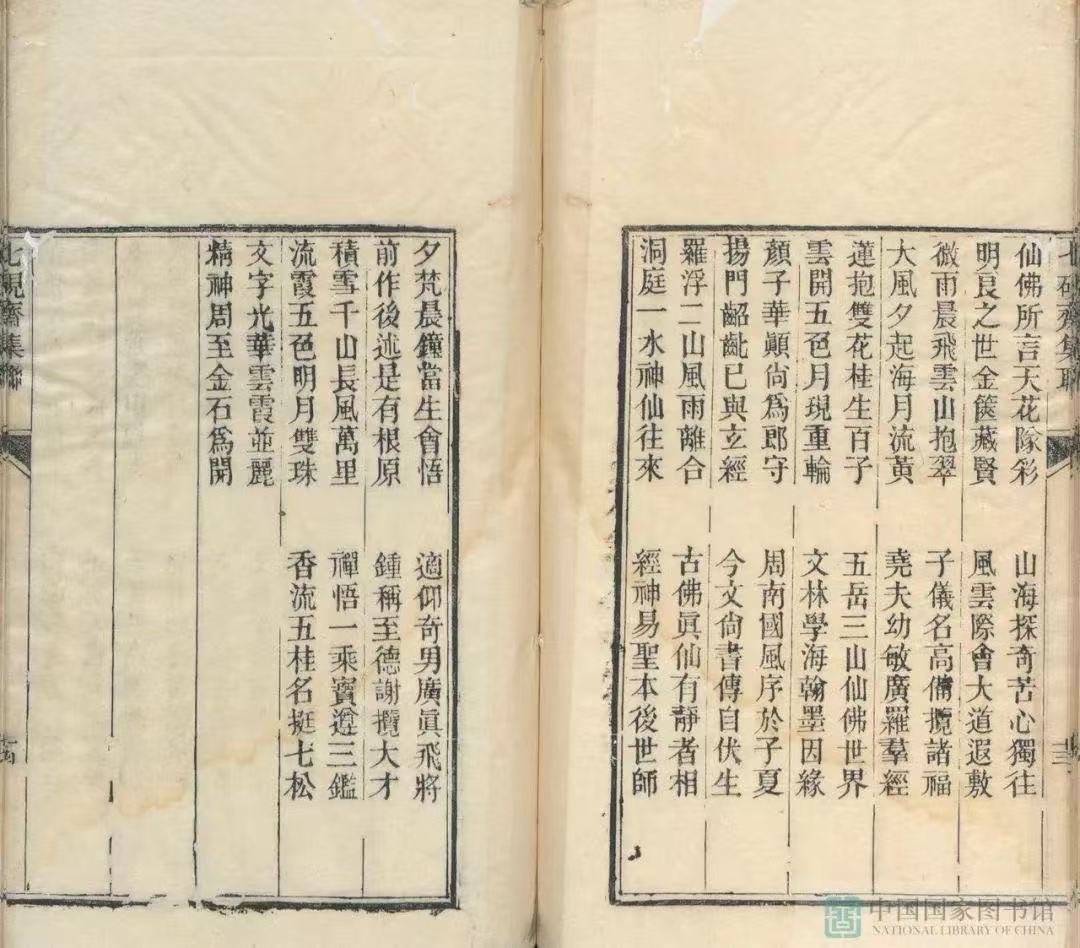 七硯齋集聯
仙佛所言天花隊彩 山海探奇苦心獨往
明良之世金篋藏賢 風雲際會大道遐敷
微雨晨飛雲山抱翠 子儀名高備攬諸福
大風夕起海月流黃 堯夫幼敏廣羅羣經
蓮抱雙花桂生百子 五岳三山仙佛世界
雲開五色月現重輪 文林學海翰墨因緣
顏子華顚尙爲郎守 周南國風序於子夏
揚門齠齔已與立經 今文尙書傳自伏生
羅浮二山風雨離合 古佛眞仙有靜者相
洞庭一水神仙往來 經神易聖本後世師
夕梵晨鐘當生會悟 適仰奇男廣眞飛將
前作後述是有根原 鍾稱至德謝攬大才
積雪千山長風萬里 禪悟一乘寶遵三鑑
流霞五色明月雙珠 香流五桂名挺七松
文字光華雲霞並麗
精神周至金石爲開
七硯齋集聯
中国国家图书馆
NATIONAL LIBRARY OF CHINA